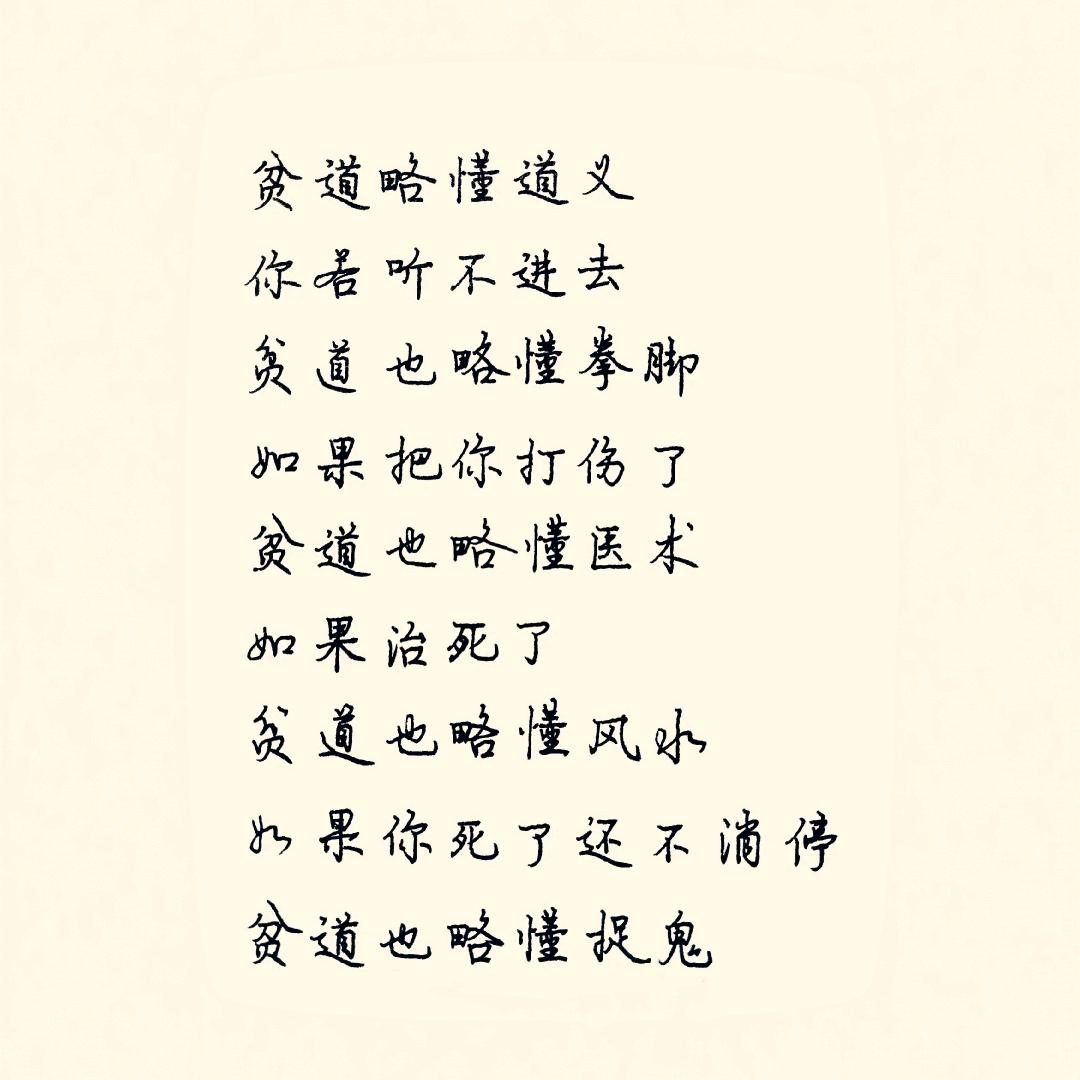 贫道略懂道义
你若听不进去
贫道也略懂拳脚
如果把你打伤了
贫道也略懂医术
如果治死了
贫道也略懂风水
如果你死了还不消停
贫道也略懂捉鬼